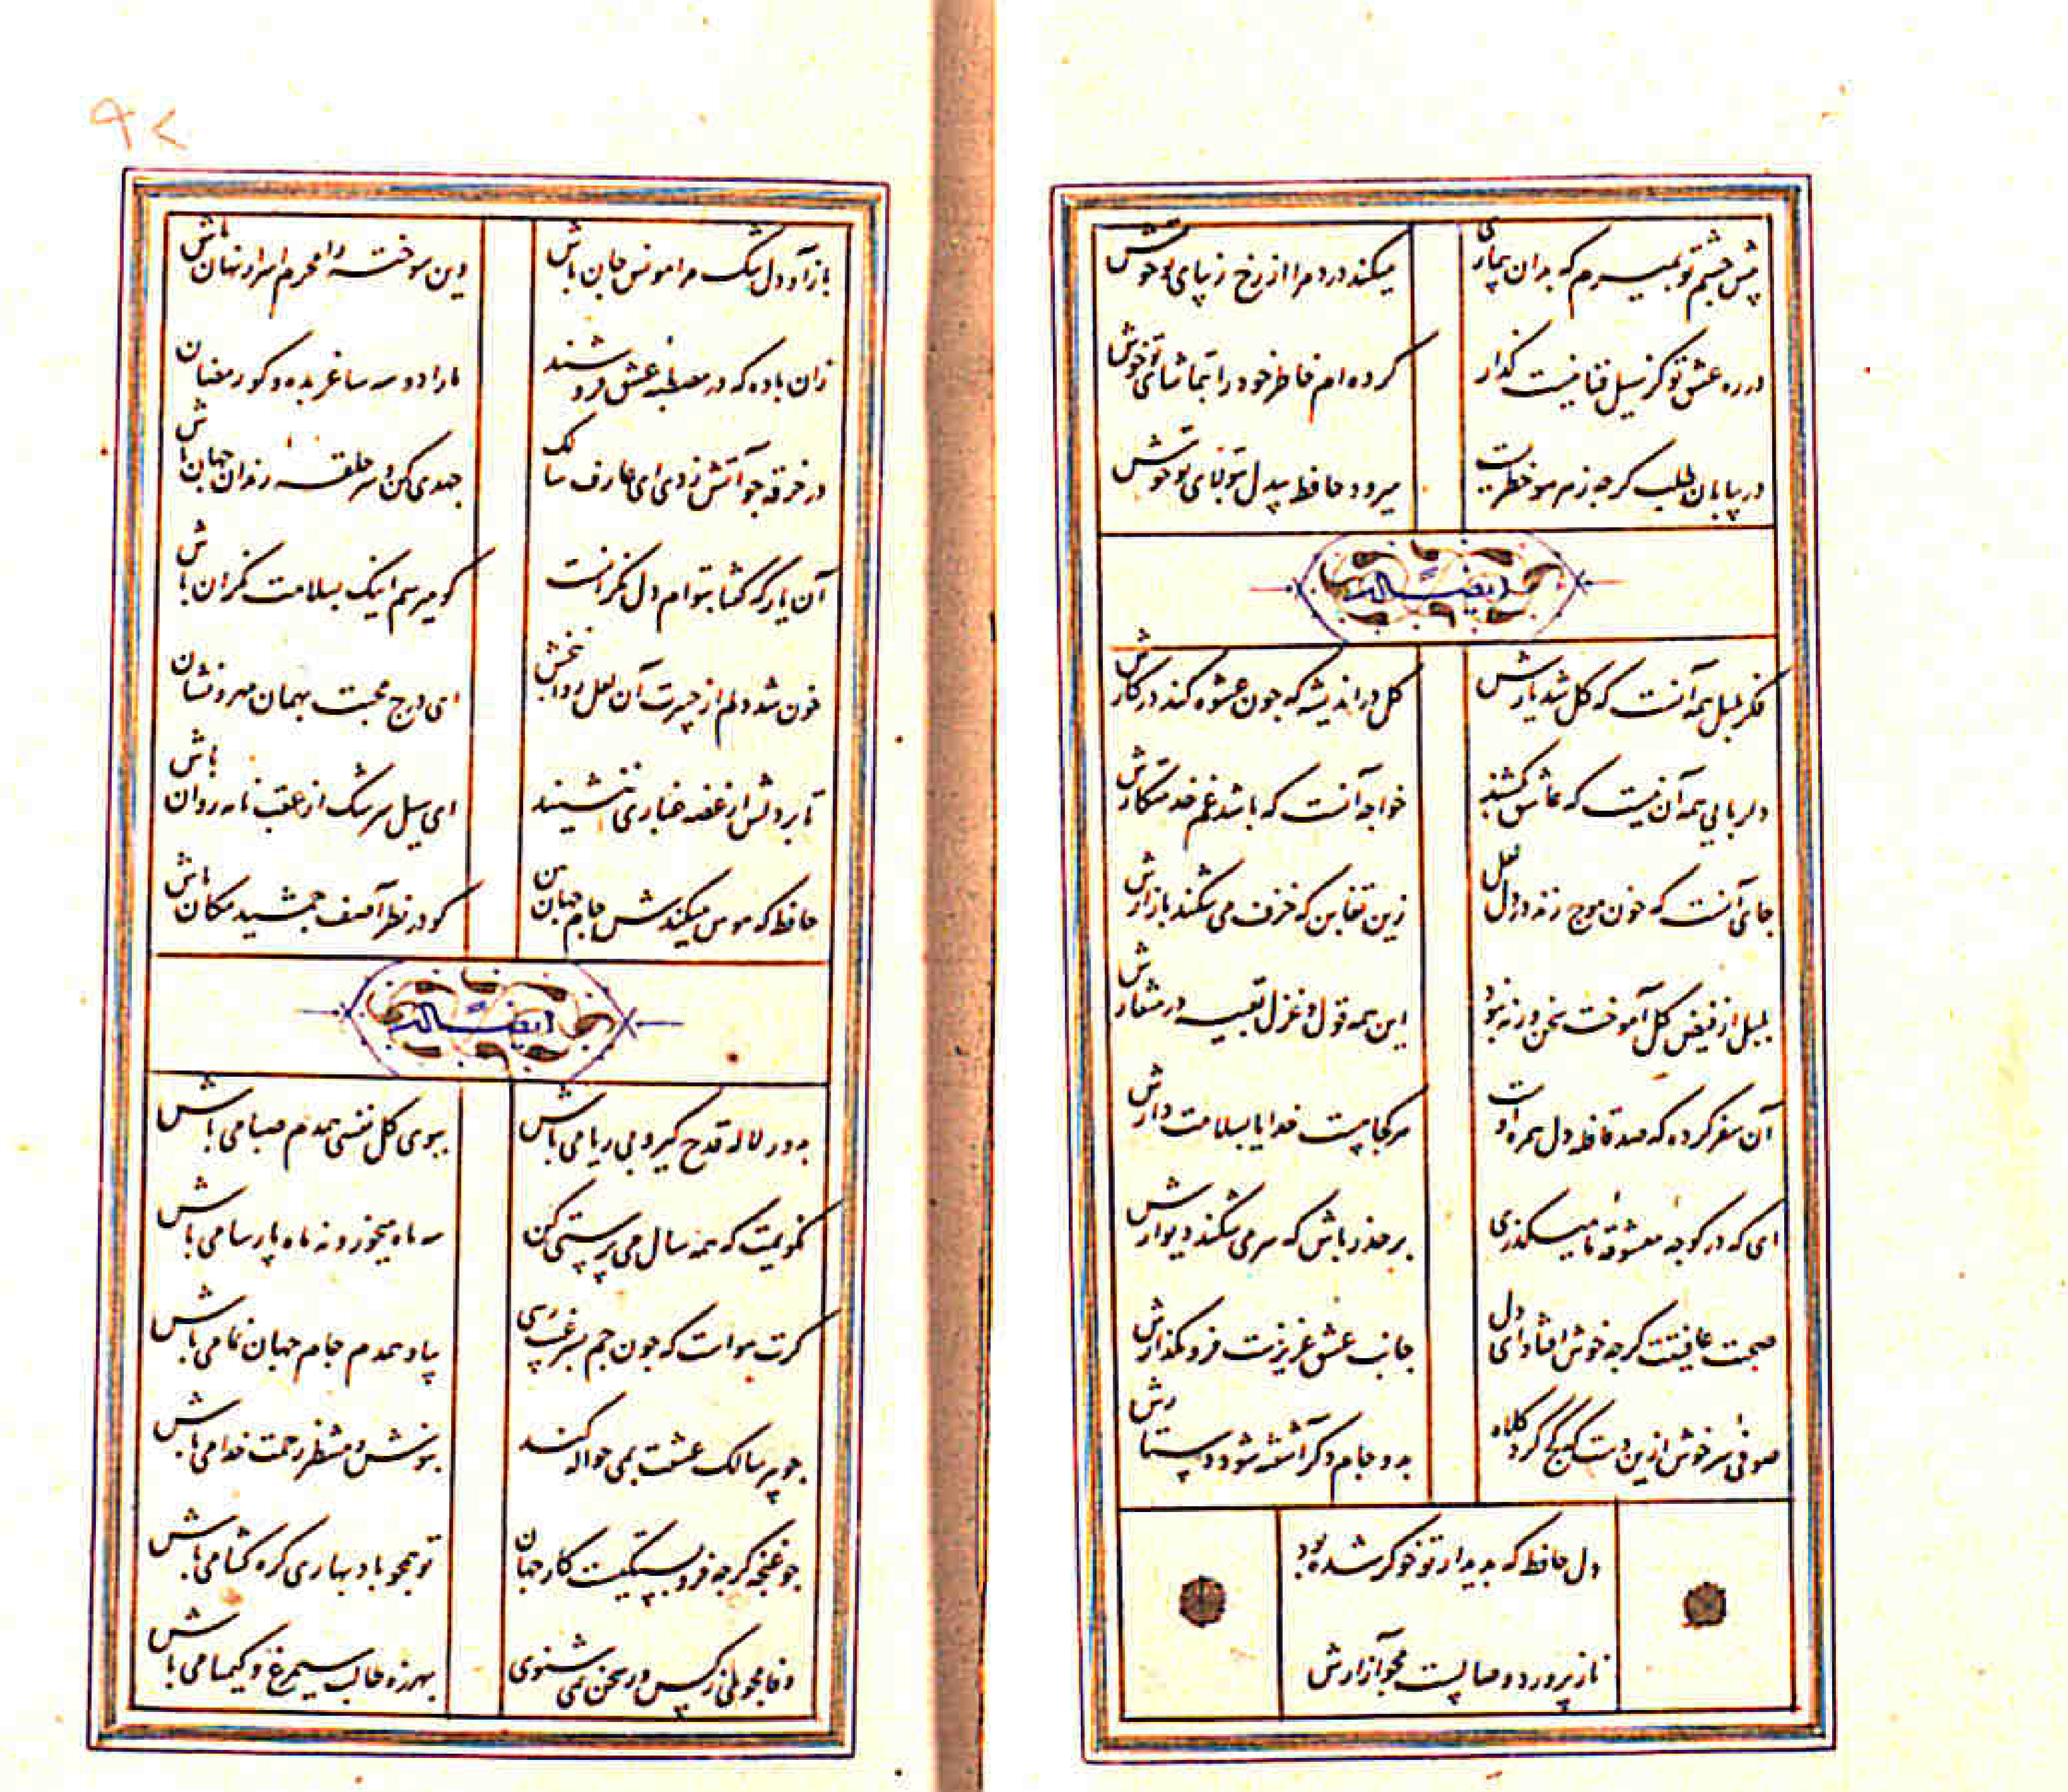 پیش چشم تو بمیرم که بدان بیماری
میکند درد مرا از رخ زیبای تو خوش
در ره عشق تو کز سیل فنا نیست گذار
کرده ام خاطر خود را بتماشای تو خوش
در بیابان طلب کرچه ز هر سو خطریست
میرود حافظ بیدل بتولای تو خوش
ایضا له
فکر بلبل همه آنست که کل شد یارش
کل در اندیشه که چون عشوه کند در کارش
دلربایی همه آن نیست که عاشق بکشند
خواجه آنست که باشد غم خدمتکارش
جای آنست که خون موج زند در دل لعل
زین تغابن که خزف می شکند بازارش
بلبل از فیض کل آموخت سخن ورنه نبود
این همه قول و غزل تعبیه در منقارش
آن سفر کرده که صد قافله دل همره اوست
هر کجا هست خدایا بسلامت دارش
ای که در کوچه معشوقه ما میکذری
بر حذر باش که سر می شکند دیوارش
صحبت عافیتت کرچه خوش افتاد ای دل
جانب عشق عزیزست فرو مکذارش
صوفی سرخوش ازین دست که کج کرد کلاه
بدو جام دکر آشفته شود دستارش
دل حافظ که بدیدار تو خوکر شده بود
نازپرورد وصالست مجو آزارش
۹۷
بازآ و دل تنک مرا مونس جان باش
وین سوخته را محرم اسرار نهان باش
زان باده که در مصطبه عشق فروشند
ما را دو سه ساغر بده و کو رمضان باش
در خرقه چو آتش زدی ای عارف سالک
جهدی کن و سر حلقه رندان جهان باش
آن یار که کفتا بتوام دل نکرانست
کو میرسم اینک بسلامت نکران باش
خون شد دلم از حسرت آن لعل روان بخش
ای درج محبت بهمان مهر و نشان باش
تا بر دلش از غصه غباری ننشیند
ای سیل سرشک از عقب نامه روان باش
حافظ که هوس میکندش جام جهان بین
کو در نظر آصف جمشید مکان باش
ایضا له
بدور لاله قدح کیر و بی ریا می باش
ببوی کل نفسی همدم صبا می باش
نکویمت که همه سال می پرستی کن
سه ماه میخور و نه ماه پارسا می باش
کرت هواست که چون جم بسر غیب رسی
بیا و همدم جام جهان نما می باش
چو پیر سالک عشقت بمی حواله کند
بنوش و منتظر رحمت خدا می باش
چو غنچه کرچه فرو بستکیست کار جهان
تو همچو باد بهاری کره کشا می باش
وفا مجوی ز کس ور سخن نمی شنوی
بهرزه طالب سیمرغ و کیمیا می باش